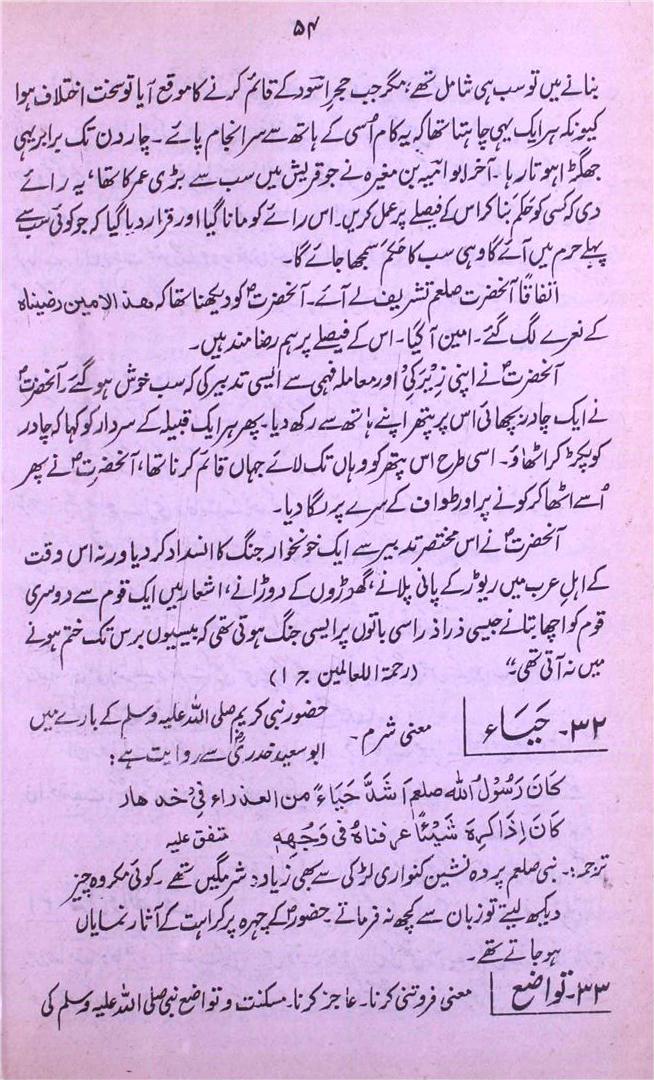 ۵۴
بنانے میں تو سب ہی شامل تھے، مگر جب حجرِ اسود کے قائم کرنے کا موقع آیا تو سخت اختلاف ہوا
کیونکہ ہر ایک یہی چاہتا تھا کہ یہ کام اُسی کے ہاتھ سے سرانجام پائے۔ چار دن تک برابر یہی
جھگڑا ہوتا رہا۔ آخر ابو امیہ بن مغیرہ نے جو قریش میں سب سے بڑی عمر کا تھا، یہ رائے
دی کہ کسی کو حَکم بنا کر اس کے فیصلے پر عمل کریں۔ اس رائے کو مانا گیا اور قرار دیا گیا کہ جو کوئی سب سے
پہلے حرم میں آئے گا وہی سب کا حَکم سمجھا جائے گا۔
اتفاقاً آنحضرت صلعم تشریف لے آئے۔ آنحضرتؐ کو دیکھنا تھا کہ ھذا الامین رضیناہ
کے نعرے لگ گئے۔ امین آ گیا۔ اس کے فیصلے پر ہم رضامند ہیں۔
آنحضرتؐ نے اپنی زیرکی اور معاملہ فہمی سے ایسی تدبیر کی کہ سب خوش ہو گئے۔ آنحضرتؐ
نے ایک چادر بچھائی اس پر پتھر اپنے ہاتھ سے رکھ دیا۔ پھر ہر ایک قبیلہ کے سردار کو کہا کہ چادر
کو پکڑ کر اٹھاؤ۔ اسی طرح اس پتھر کو وہاں تک لائے جہاں قائم کرنا تھا، آنحضرتؐ نے پھر
اُسے اٹھا کر کونے پر اور طواف کے سرے پر لگا دیا۔
آنحضرتؐ نے اس مختصر تدبیر سے ایک خونخوار جنگ کا انسداد کر دیا ورنہ اس وقت
کے اہلِ عرب میں ریوڑ کے پانی پلانے، گھوڑوں کے دوڑانے، اشعار میں ایک قوم سے دوسری
قوم کو اچھا بتانے جیسی ذرا ذرا سی باتوں پر ایسی جنگ ہوتی تھی کہ بیسیوں برس تک ختم ہونے
میں نہ آتی تھی“ (رحمۃ اللعالمین ج ۱)
۳۲۔ حَیَاء معنی شرم۔ حضور نبی کریم صلی اللہ علیہ وسلم کے بارے میں
ابو سعید خدریؓ سے روایت ہے:
کَانَ رَسُوْلُ اللہ صلعم اَشَدَّ حَیَاءً من العذراء فِیْ خدھا
کَانَ اِذَا کرِہَ شَیْئًا عرفناہُ فی وَجْھِہٖ متفق علیہ
ترجمہ:۔ نبی صلعم پردہ نشین کنواری لڑکی سے بھی زیادہ شرمگیں تھے۔ کوئی مکروہ چیز
دیکھ لیتے تو زبان سے کچھ نہ فرماتے حضورؐ کے چہرہ پر کراہت کے آثار نمایاں
ہو جاتے تھے۔
۳۳۔ تواضع معنی فروتنی کرنا۔ عاجز کرنا۔ مسکنت و تواضع نبی صلی اللہ علیہ وسلم کی